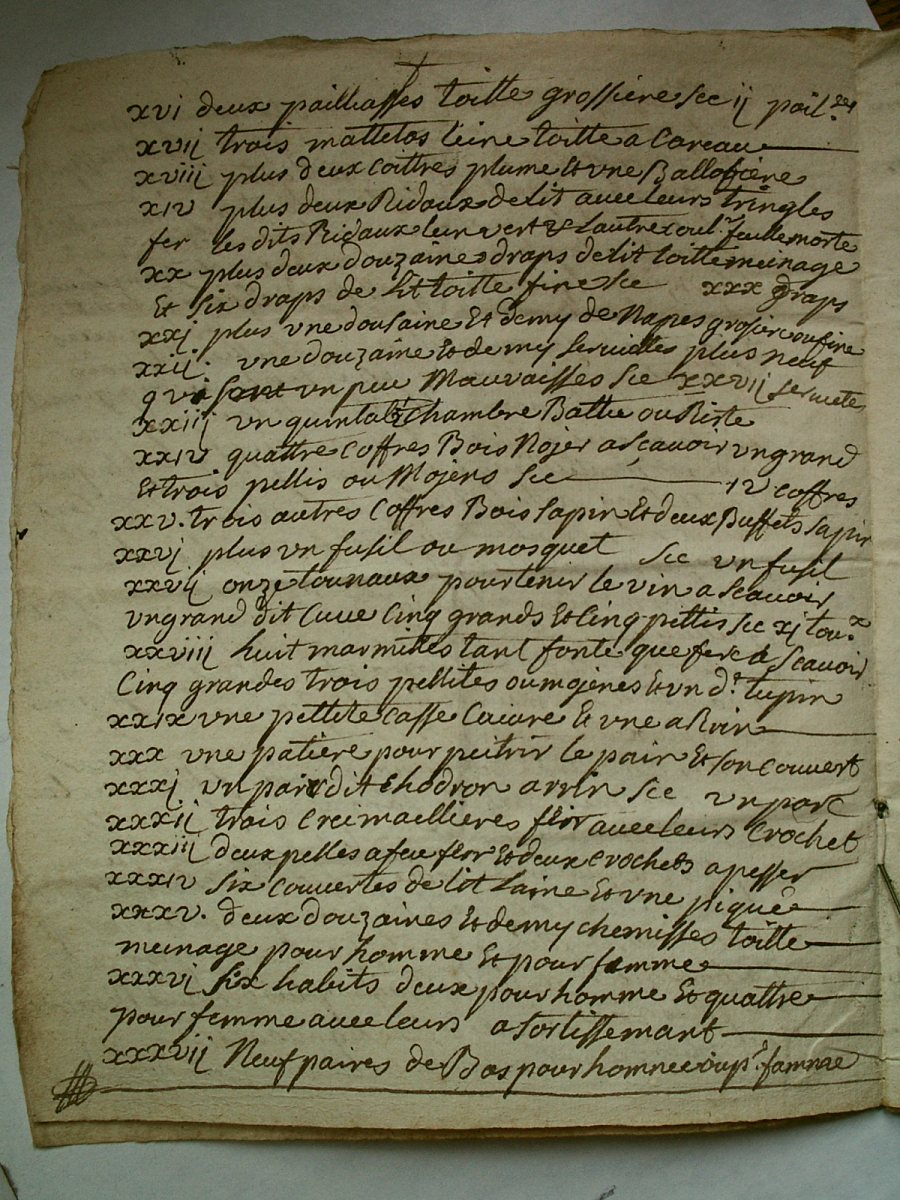 xvi deux pailliasses toille grossiere Sce ij pail.ses
xvij trois mattelas leine toille a Careau
xviiij plus deux Coittres plume Et vne Ballofiere
xiv plus deux Ridaux de lit avec leurs tringles
fer les dits Ridaux lun vert & Lautre coul.r feulle morte
xx plus deux douzaines draps de lit toille meinage
Et Six draps de Lit toille fine Sce xxx draps
xxj plus vne dousaine Et demy de Napes grosiere ou fine
xxij. vne douzaine Et demy serviettes plus neuf
qui sont un peu Mauvaisses Sce xxvij serviete
xxiij vn quintal Chambre Battu ou Riste
xxiv quattre Coffres Bois Nojer a Sçavoir vn grand
Et trois pettis ou Mojens Sce iv Coffres
xxv. trois autres Coffres Bois Sapin Et deux Buffets Sapin
xxvj plus vn fusil ou mosquet Sce vn fusil
xxvij onze tounaux pour tenir le vin a Scavoir
vn grand dit Cuve Cinq grands Et Cinq pettis Sce xj tou.x
xxviiij huit marmittes tant fonte que fere a Scavoir
Cinq grandes trois pettites ou mojenes Et vn d.t tupin
xxix vne pettite Casse Cuivre Et vne a Rrin
xxx vne patiere pour peitrir le pain Et son Couvert
xxxj vn pair dit Chodron arrin Sce vn pare
xxxij trois Creimaellieres fer avec leurs Crochet
xxxiij deux pelles a feu fer Et deux Crochets a pesser
xxxiv Six Couvertes de lit Laine Et vne piquée
xxxv. deux douzaines Et demy chemisses toille
meinage pour homme Et pour femme
xxxvj Six habits deux pour homme Et quattre
pour femme avec leurs asortissemant
xxxvij Neuf paires de Bas pour homme famme